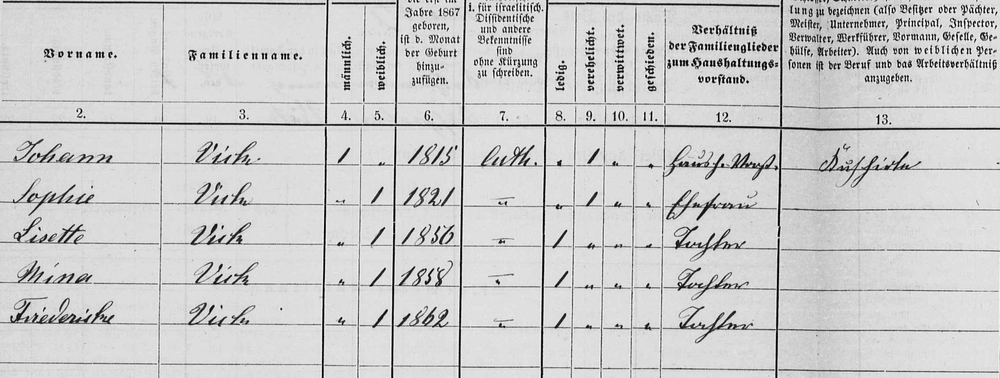 Jahre 1867
geboren,
ist d. Monat
der Geburt
hinzu-
zufügen.
i. für israelitisch.
Dissidentische
und andere
Bekenntnisse
sind
ohne Kürzung
zu schreiben.
Verhältniß
der Familienglieder
zum Haushaltungs-
vorstand.
lung zu bezeichnen (also Besitzer oder Pächter,
Meister, Unternehmer, Principal, Inspector,
Verwalter, Werkführer, Vormann, Geselle, Ge-
hülfe, Arbeiter). Auch von weiblichen Per-
sonen ist der Beruf und das Arbeitsverhältniß
anzugeben.
Vorname. Familienname. männlich. weiblich. ledig. verehelicht. verwittwet. geschieden.
2. 3. 4. 5. 6. 7. 8. 9. 10. 11. 12. 13.
Johann Vick 1 „ 1815 luth. „ 1 „ „ Haush. Vorst. Kuhhirte
Sophie Vick „ 1 1821 „ „ 1 „ „ Ehefrau
Lisette Vick „ 1 1856 „ 1 „ „ „ Tochter
Mina Vick „ 1 1858 „ 1 „ „ „ Tochter
Friederike Vick „ 1 1862 „ 1 „ „ „ Tochter